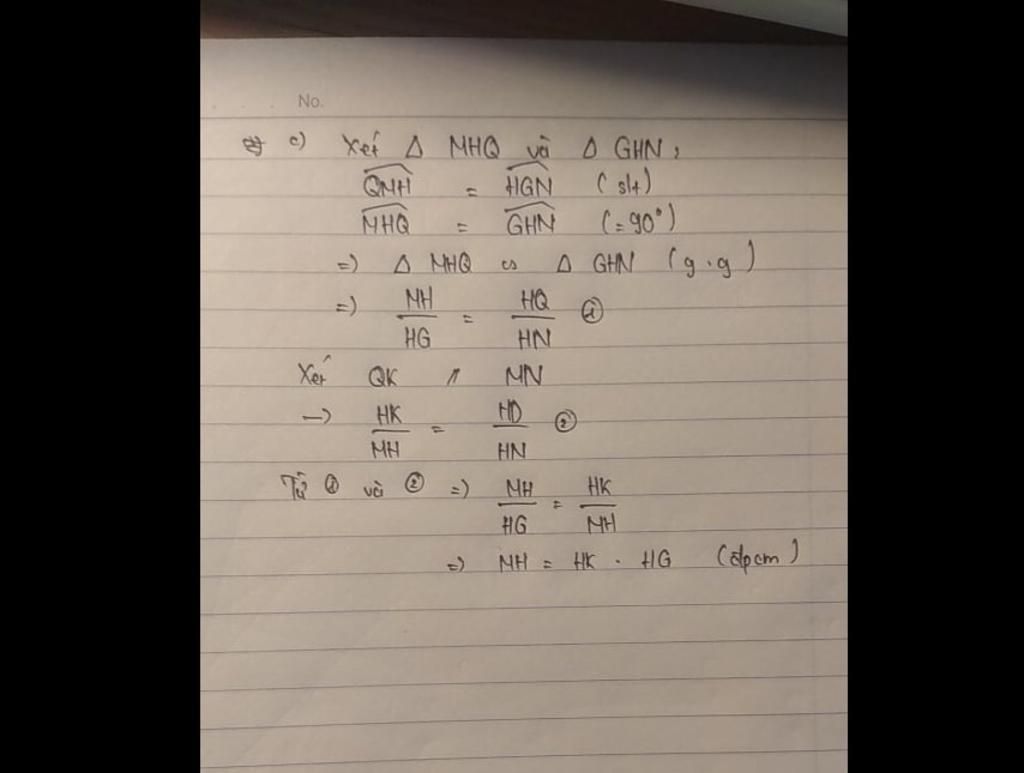 No.
c) Xét Δ MHQ và Δ GHN,
QMH = HGN (slt)
MHQ = GHN (=90°)
=) Δ MHQ ∽ Δ GHN (g.g)
=) MH/HG = HQ/HN ①
Xét QK // MN
—) HK/MH = HD/HN ②
Từ ① và ② =) MH/HG = HK/MH
=) MH = HK . HG (đpcm)